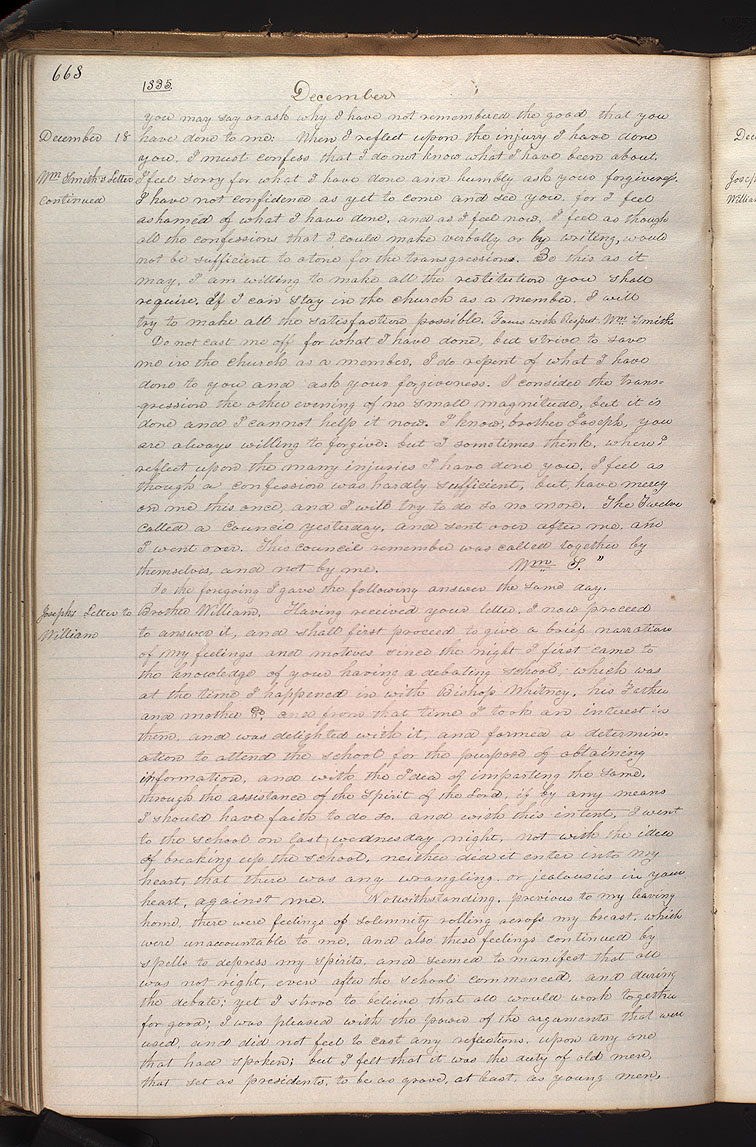 668
1835.
December
you may say or ask why I have not remembered the good that you
December 18 have done to me: When I reflect upon the injury I have done
you, I must confess that I do not know what I have been about.
Wm Smith's Letter I feel sorry for what I have done and humbly ask your forgiveness.
Continued I have not confidence as yet to come and see you, for I feel
ashamed of what I have done, and as I feel now, I feel as though
all the confessions that I could make verbally or by writing, would
not be sufficient to atone for the transgressions. Be this as it
may, I am willing to make all the restitution you shall
require, If I can stay in the church as a member. I will
try to make all the satisfaction possible. Yours with Respect Wm Smith.
Do not cast me off for what I have done, but strive to save
me in the church as a member. I do repent of what I have
done to you and ask your forgiveness. I consider the trans-
gression the other evening of no small magnitude, but it is
done and I cannot help it now. I know, brother Joseph, you
are always willing to forgive: but I sometimes think, when I
reflect upon the many injuries I have done you, I feel as
though a confession was hardly sufficient, but have mercy
on me this once, and I will try to do so no more. The Twelve
called a Council yesterday, and sent over after me, and
I went over. This council remember was called together by
themselves, and not by me. Wm S."
To the foregoing I gave the following answer the same day.
Josephs Letter to Brother William. Having received your letter, I now proceed
William to answer it, and shall first proceed to give a brief narration
of my feelings and motives since the night I first came to
the knowledge of your having a debating school, which was
at the time I happened in with Bishop Whitney, his Father
and mother &c. and from that time I took an interest in
them, and was delighted with it, and formed a determin-
ation to attend the school for the purpose of obtaining
information, and with the Idea of imparting the same,
through the assistance of the Spirit of the Lord, if by any means
I should have faith to do so. and with this intent, I went
to the school on last wednesday night, not with the idea
of breaking up the school, neither did it enter into my
heart, that there was any wrangling or jealousies in your
heart, against me. Notwithstanding, previous to my leaving
home, there were feelings of solemnity rolling across my breast, which
were unaccountable to me, and also these feelings continued by
spells to depress my spirits, and seemed to manifest that all
was not right, even after the school commenced, and during
the debate; yet I strove to believe that all would work together
for good; I was pleased with the power of the arguments that were
used, and did not feel to cast any reflections, upon any one
that had spoken; but I felt that it was the duty of old men,
that set as presidents, to be as grave, at least, as young men,